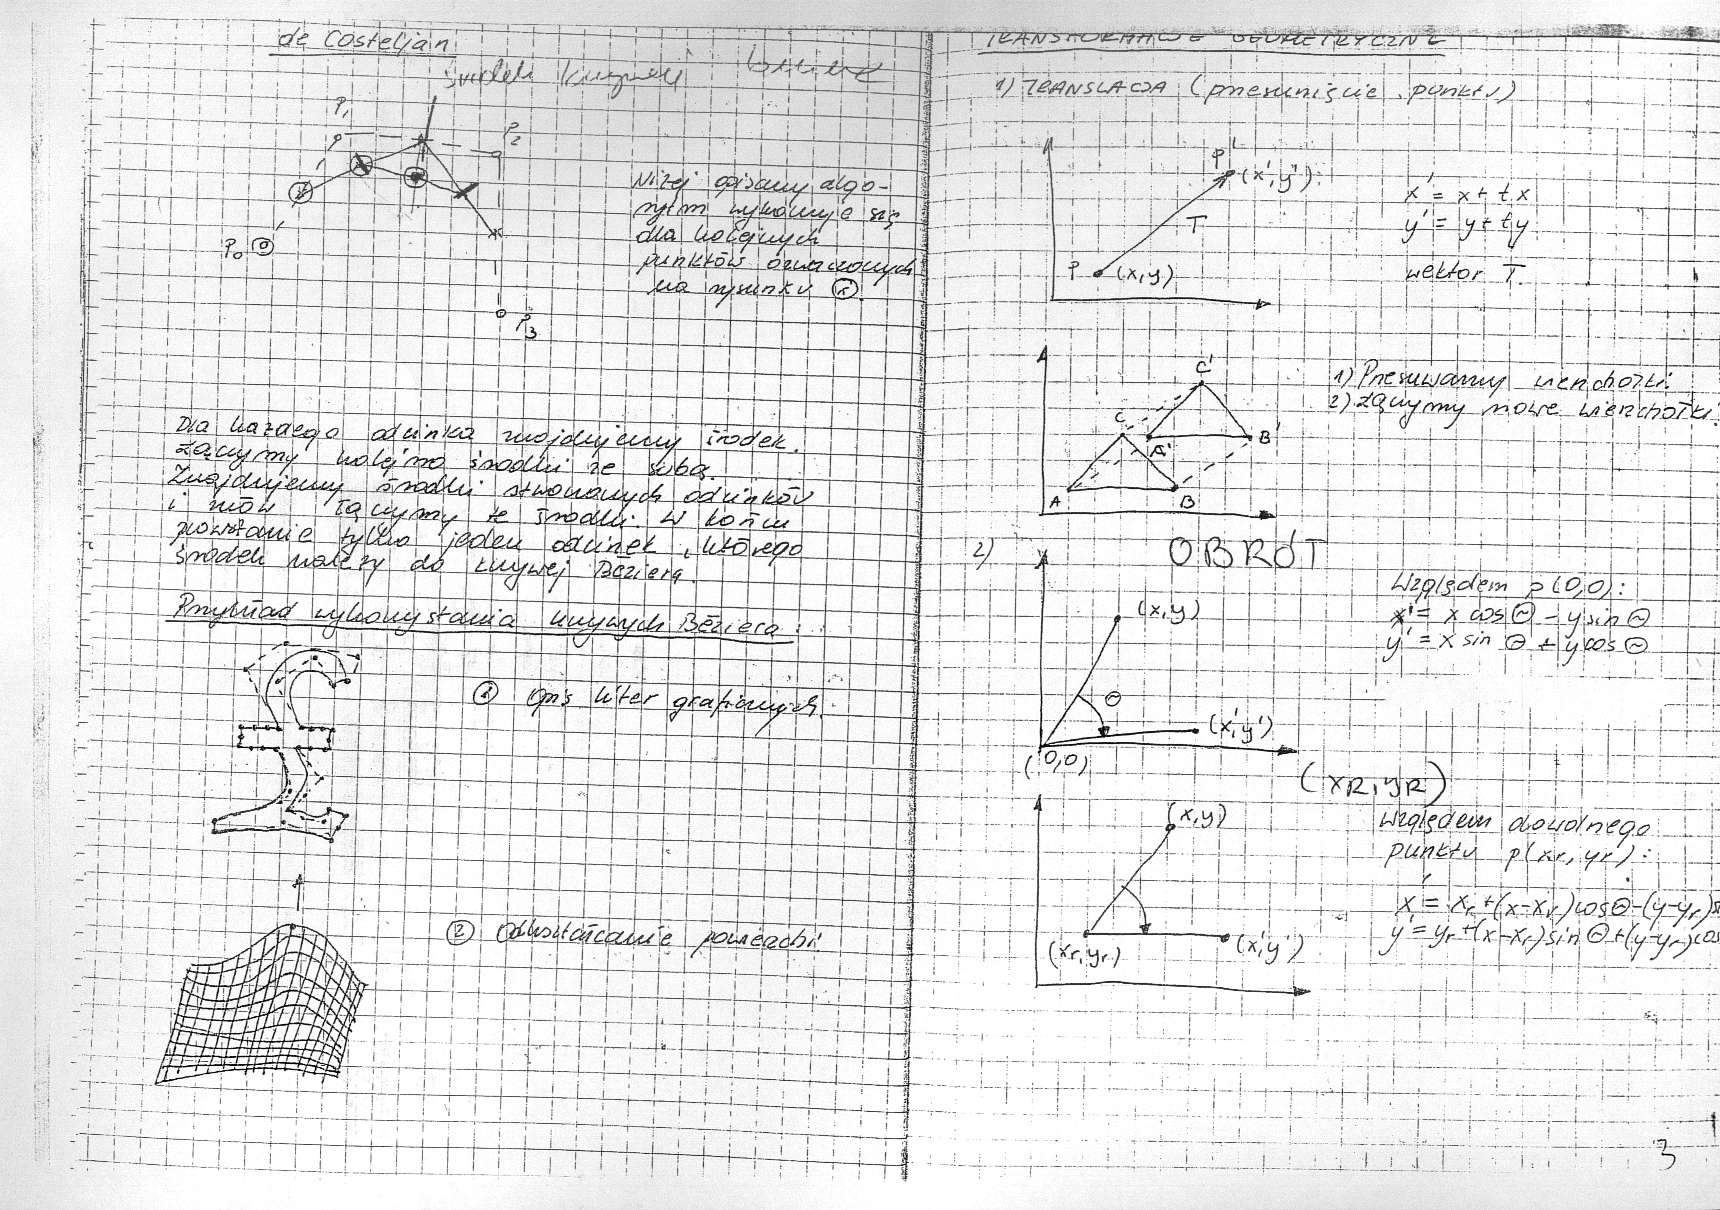 de Casteljau
środek krzywej
P₁
P₂
P₀
P₃
Niżej opisany algo-
rytm wykonuje się
dla kolejnych
punktów oznaczonych
na rysunku ⓧ.
Dla każdego odcinka znajdujemy środek.
Łączymy kolejno środki ze sobą.
Znajdujemy środki stworzonych odcinków
i znów łączymy te środki. W końcu
powstanie tylko jeden odcinek, którego
środek należy do krzywej Béziera.
Przykład wykorzystania krzywych Béziera:
① Opis liter graficznych.
② Odkształcanie powierzchni
TRANSFORMACJE GEOMETRYCZNE
1) TRANSLACJA (przesunięcie punktu)
P'
(x',y')
T
P
(x,y)
x' = x + tx
y' = y + ty
wektor T.
C'
C
A'
B'
A
B
1) Przesuwamy wierzchołki.
2) Łączymy nowe wierzchołki.
2)
OBRÓT
(x,y)
Θ
(x',y')
(0,0)
Względem p(0,0):
x' = x cos Θ - y sin Θ
y' = x sin Θ + y cos Θ
(xR, yR)
(x,y)
(xr,yr)
(x',y')
Względem dowolnego
punktu p(xr, yr):
x' = xr + (x-xr)cos Θ - (y-yr)s
y' = yr + (x-xr)sin Θ + (y-yr)cos
3